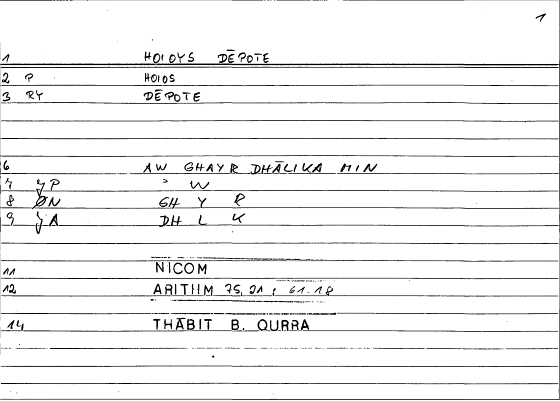 1
1 HOIOYS DĒPOTE
2 P HOIOS
3 RY DĒPOTE
6 AW GHAYR DHĀLIKA MIN
7 YP ʾ W
8 ØN GH Y R
9 YA DH L K
11 NICOM
12 ARITIIM 75, 21 ; 61.18
14 THĀBIT B. QURRA